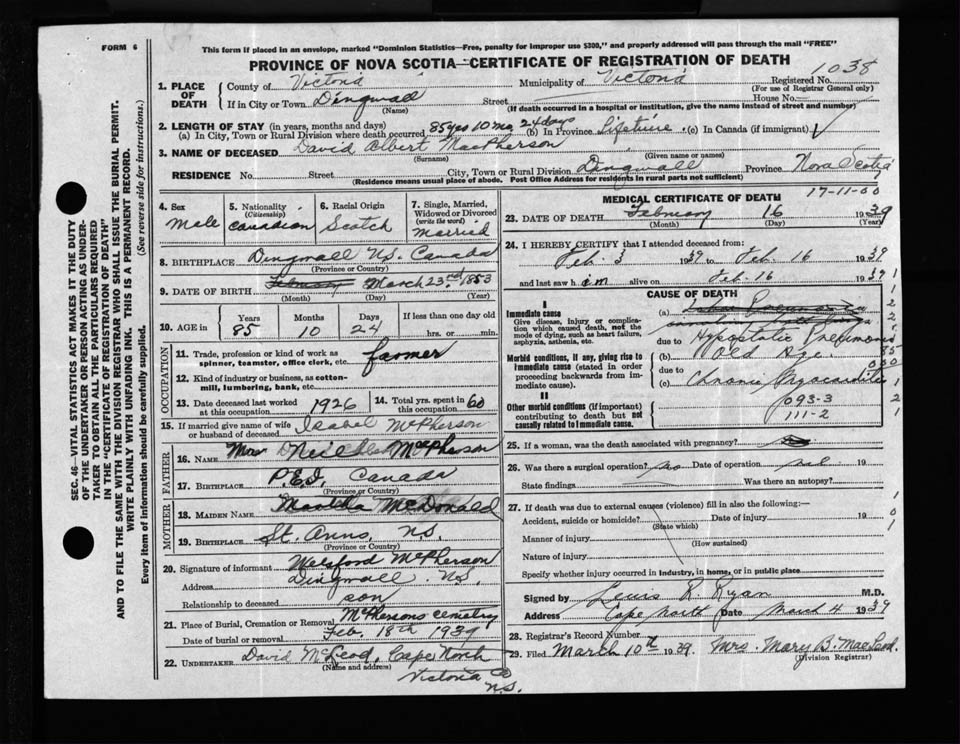 FORM 6
This form if placed in an envelope, marked "Dominion Statistics—Free, penalty for improper use $300," and properly addressed will pass through the mail "FREE"
PROVINCE OF NOVA SCOTIA—CERTIFICATE OF REGISTRATION OF DEATH
1038
1. PLACE OF DEATH { County of Victoria Municipality of Victoria Registered No.
(For use of Registrar General only)
If in City or Town Dingwall Street House No.
(Name) (If death occurred in a hospital or institution, give the name instead of street and number)
2. LENGTH OF STAY (in years, months and days)
(a) In City, Town or Rural Division where death occurred 85 yrs 10 mo 24 days (b) In Province Lifetime (c) In Canada (if immigrant) √
3. NAME OF DECEASED David Albert MacPherson
(Surname) (Given name or names)
RESIDENCE No. Street City, Town or Rural Division Dingwall Province Nova Scotia
(Residence means usual place of abode. Post Office Address for residents in rural parts not sufficient)
4. Sex Male
5. Nationality (Citizenship) Canadian
6. Racial Origin Scotch
7. Single, Married, Widowed or Divorced (write the word) Married
8. BIRTHPLACE Dingwall N.S. Canada
(Province or Country)
9. DATE OF BIRTH February March 23rd 1853
(Month) (Day) (Year)
10. AGE in { Years Months Days If less than one day old
85 10 24 hrs. or min.
OCCUPATION
11. Trade, profession or kind of work as spinner, teamster, office clerk, etc. farmer
12. Kind of industry or business, as cotton-mill, lumbering, bank, etc.
13. Date deceased last worked at this occupation 1926 14. Total yrs. spent in this occupation 60
15. If married give name of wife or husband of deceased Isabel McPherson
FATHER
16. NAME McPherson
17. BIRTHPLACE P.E.I. Canada
(Province or Country)
MOTHER
18. MAIDEN NAME Martha McDonald
19. BIRTHPLACE St. Anns, N.S.
(Province or Country)
20. Signature of informant Welsford McPherson
Address Dingwall N.S.
Relationship to deceased son
21. Place of Burial, Cremation or Removal McPhersons Cemetry
Date of burial or removal Feb. 18th 1939
22. UNDERTAKER David McLeod, Cape North
(Name and address)
Victoria Co
N.S.
17-11-00
MEDICAL CERTIFICATE OF DEATH
23. DATE OF DEATH February 16 1939
(Month) (Day) (Year)
24. I HEREBY CERTIFY that I attended deceased from:
Feb. 3 1939 to Feb. 16 1939
and last saw him alive on Feb. 16 1939
CAUSE OF DEATH
I
Immediate cause
Give disease, injury or complication which caused death, not the mode of dying, such as heart failure, asphyxia, asthenia, etc.
(a)
due to Hypostatic Pneumonia
Morbid conditions, if any, giving rise to immediate cause (stated in order proceeding backwards from immediate cause).
(b) Old Age
due to
(c) Chronic Myocarditis
II
Other morbid conditions (if important) contributing to death but not causally related to immediate cause.
093-3
111-2
25. If a woman, was the death associated with pregnancy?
26. Was there a surgical operation? no Date of operation nil 19
State findings Was there an autopsy?
27. If death was due to external causes (violence) fill in also the following:
Accident, suicide or homicide? Date of injury 19
(State which)
Manner of injury
(How sustained)
Nature of injury
Specify whether injury occurred in industry, in home, or in public place
Signed by Lewis R. Ryan M.D.
Address Cape North Date March 4 1939
28. Registrar's Record Number
29. Filed March 10th 1939. Mrs. Mary B. MacLeod.
(Division Registrar)
SEC. 46—VITAL STATISTICS ACT MAKES IT THE DUTY OF THE UNDERTAKER OR PERSON ACTING AS UNDERTAKER TO OBTAIN ALL THE PARTICULARS REQUIRED IN THE "CERTIFICATE OF REGISTRATION OF DEATH" AND TO FILE THE SAME WITH THE DIVISION REGISTRAR WHO SHALL ISSUE THE BURIAL PERMIT.
WRITE PLAINLY WITH UNFADING INK. THIS IS A PERMANENT RECORD.
Every item of information should be carefully supplied. (See reverse side for instructions.)